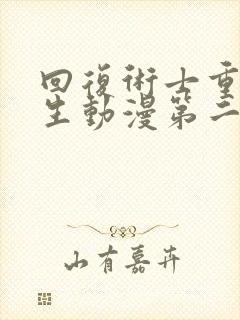 回復術士重
生動漫第二
山有嘉卉